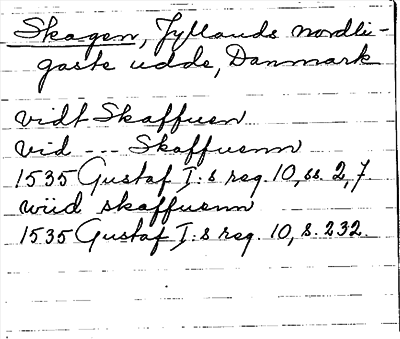 Skagen, Jyllands nordli-
gaste udde, Danmark
vidt Skaffuen
vid --- Skaffuenn
1535 Gustaf I:s reg. 10, ss. 2, 7.
wiid skaffuenn
1535 Gustaf I:s reg. 10, s. 232.